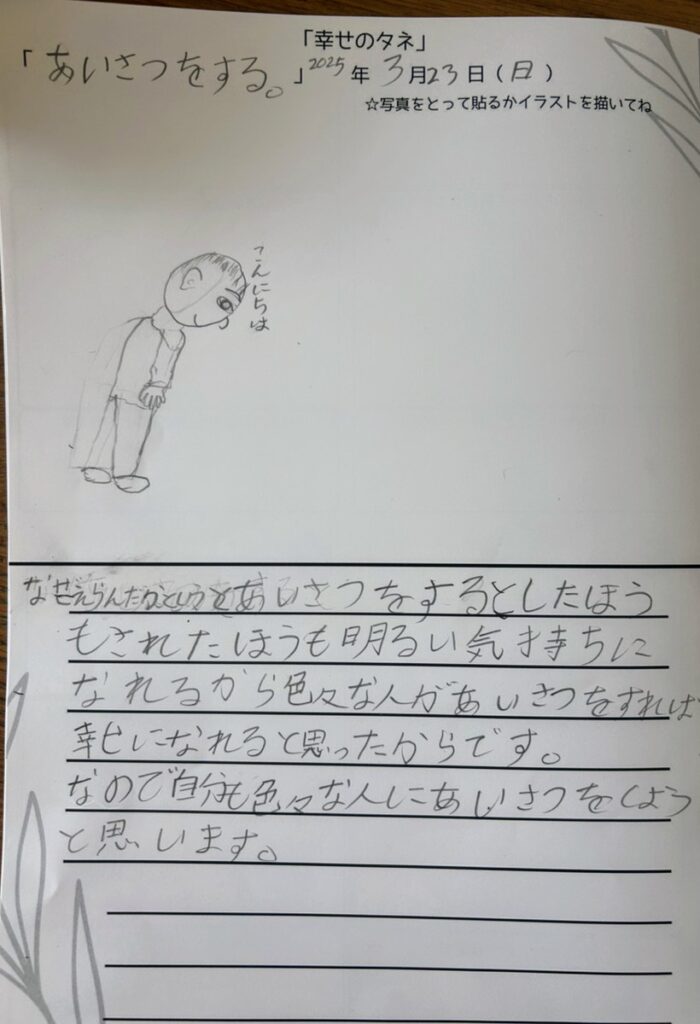 「幸せのタネ」
「あいさつをする。」2025年3月23日(日)
☆写真をとって貼るかイラストを描いてね
こんにちは
なぜえらんだかというとあいさつをするとしたほう
もされたほうも明るい気持ちに
なれるから色々な人があいさつをすれば
幸せになれると思ったからです。
なので自分も色々な人にあいさつをしよう
と思います。